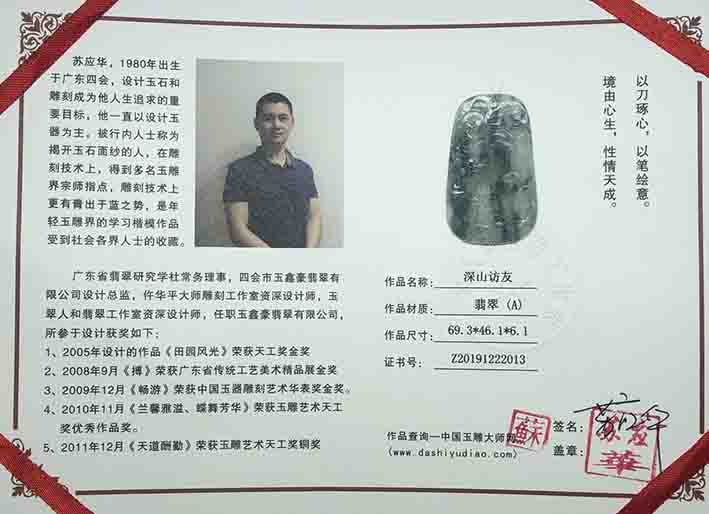 苏应华，1980年出生
于广东四会，设计玉石和
雕刻成为他人生追求的重
要目标，他一直以设计玉
器为主，被行内人士称为
揭开玉石面纱的人，在雕
刻技术上，得到多名玉雕
界宗师指点，雕刻技术上
更有青出于蓝之势，是年
轻玉雕界的学习楷模作品
受到社会各界人士的收藏。
广东省翡翠研究学社常务理事，四会市玉鑫豪翡翠有
限公司设计总监，仵华平大师雕刻工作室资深设计师，玉
翠人和翡翠工作室资深设计师，任职玉鑫豪翡翠有限公司，
所参于设计获奖如下：
1、2005年设计的作品《田园风光》荣获天工奖金奖
2、2008年9月《搏》荣获广东省传统工艺美术精品展金奖
3、2009年12月《畅游》荣获中国玉器雕刻艺术华表奖金奖。
4、2010年11月《兰馨雅溢、蝶舞芳华》荣获玉雕艺术天工
奖优秀作品奖。
5、2011年12月《天道酬勤》荣获玉雕艺术天工奖铜奖
以刀琢心，以笔绘意。
境由心生，性情天成。
作品名称： 深山访友
作品材质： 翡翠（A）
作品尺寸： 69.3*46.1*6.1
证书号： Z20191222013
作品查询一中国玉雕大师网
（www.dashiyudiao.com）
蘇
签名：
盖章：